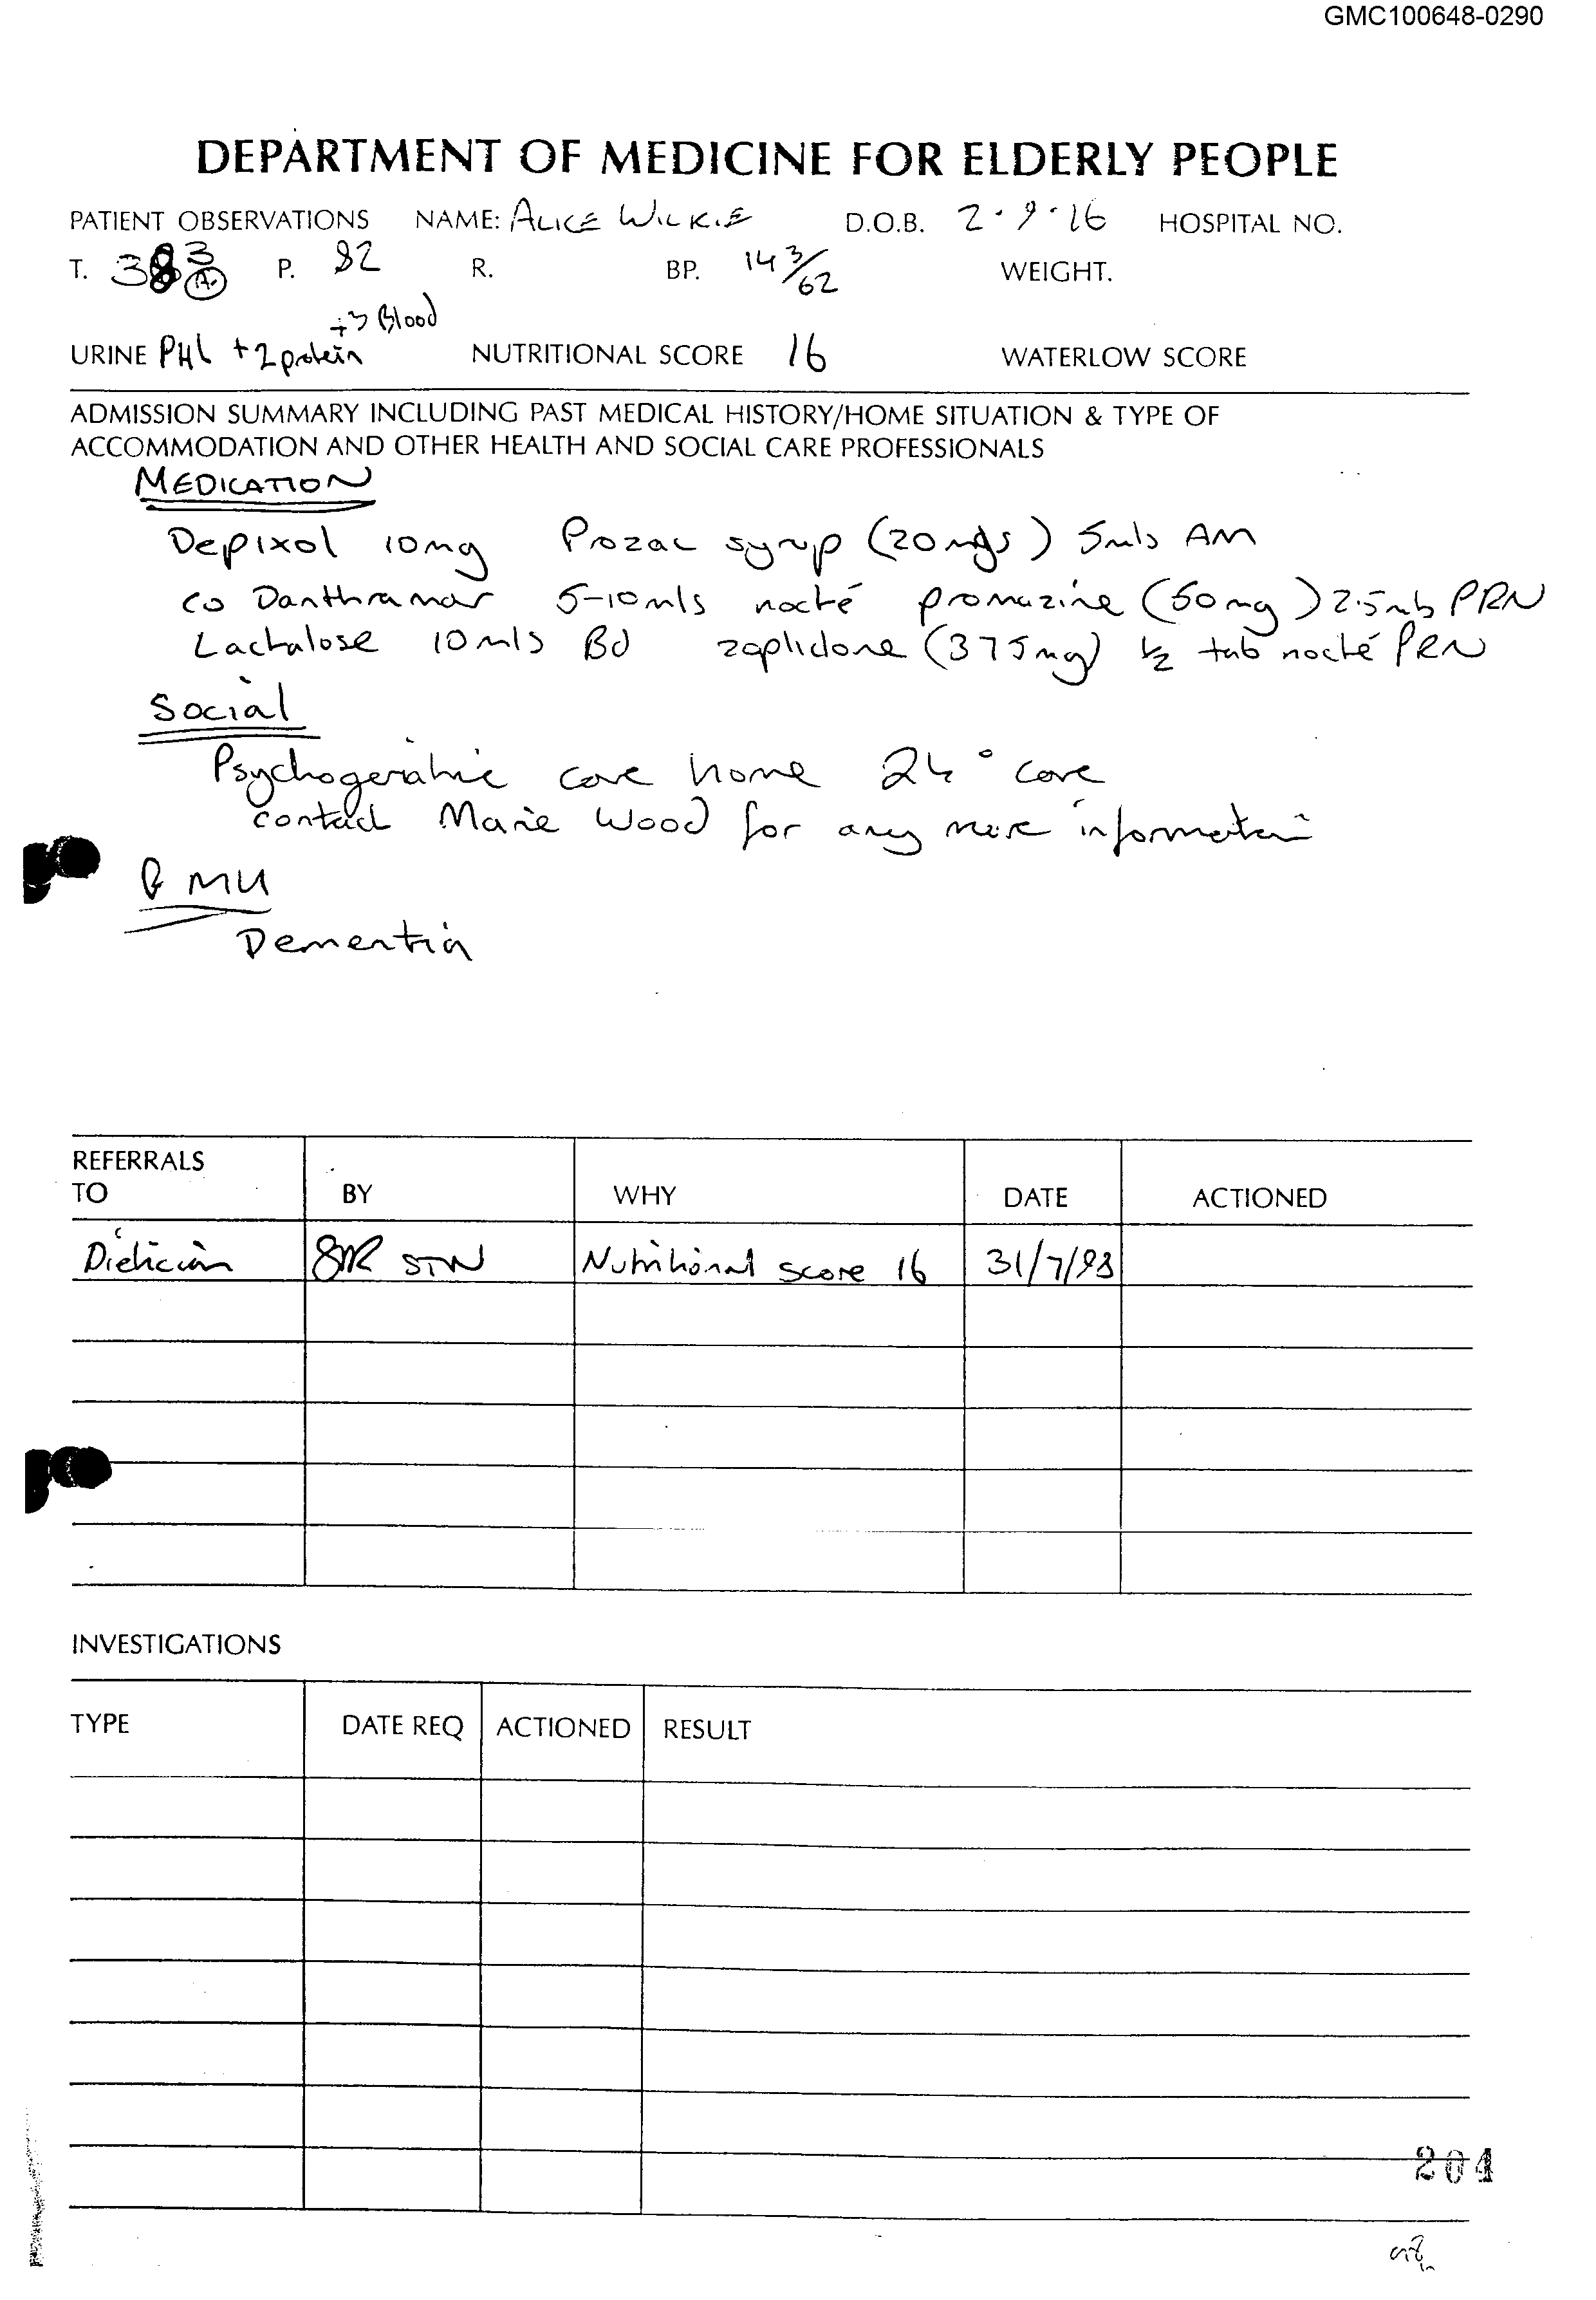 GMC100648-0290
DEPARTMENT OF MEDICINE FOR ELDERLY PEOPLE
PATIENT OBSERVATIONS NAME: ALICE WILKIE D.O.B. 2.9.16 HOSPITAL NO.
T. 383 (A) P. 82 R. BP. 143/62 WEIGHT.
+3 Blood
URINE PH6 +2 protein NUTRITIONAL SCORE 16 WATERLOW SCORE
ADMISSION SUMMARY INCLUDING PAST MEDICAL HISTORY/HOME SITUATION & TYPE OF
ACCOMMODATION AND OTHER HEALTH AND SOCIAL CARE PROFESSIONALS
MEDICATION
Depixol 10mg Prozac syrup (20mgs) 5mls AM
co Danthramar 5-10mls nocté promazine (50mg) 2.5mls PRN
Lactalose 10mls Bd zoplidone (375mg) 1/2 tab nocté PRN
Social
Psychogeriatric care home 24° care
contact Marie Wood for any more information
PMH
Dementia
REFERRALS
TO BY WHY DATE ACTIONED
Dietician STN Nutritional score 16 31/7/98
INVESTIGATIONS
TYPE DATE REQ ACTIONED RESULT
204